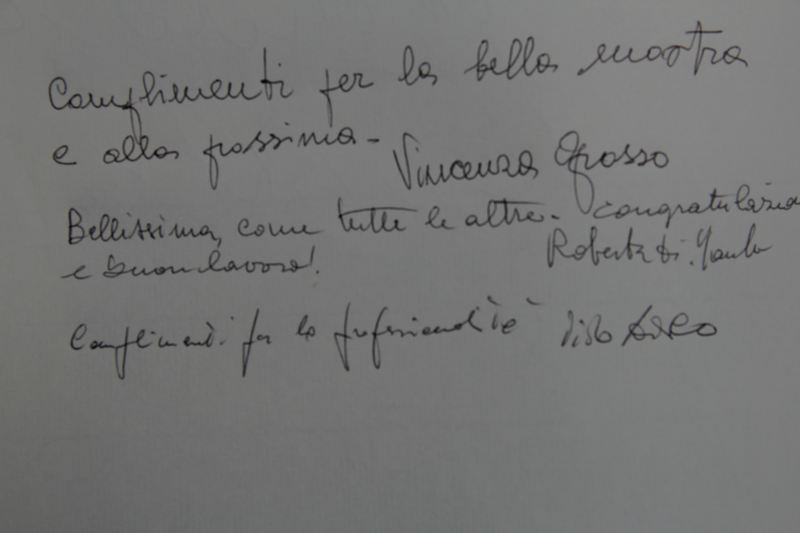 Complimenti per la bella mostra
e alla prossima - Vincenza Grosso
Bellissima, come tutte le altre - congratulazioni
e buon lavoro! Roberta di
Complimenti per la professionalità